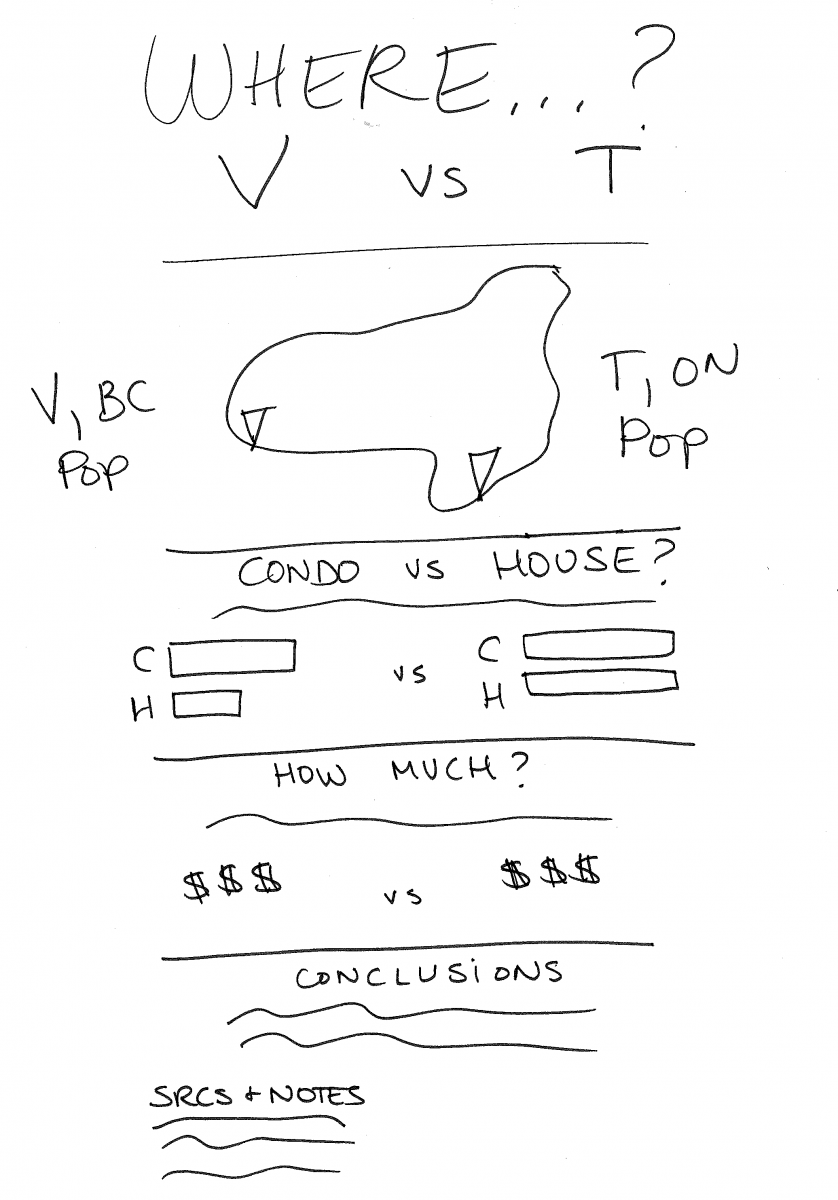 WHERE...?
V vs T
V, BC
Pop
T, ON
Pop
CONDO vs HOUSE?
C
H
vs
C
H
HOW MUCH?
$$$ vs $$$
CONCLUSIONS
SRCS + NOTES